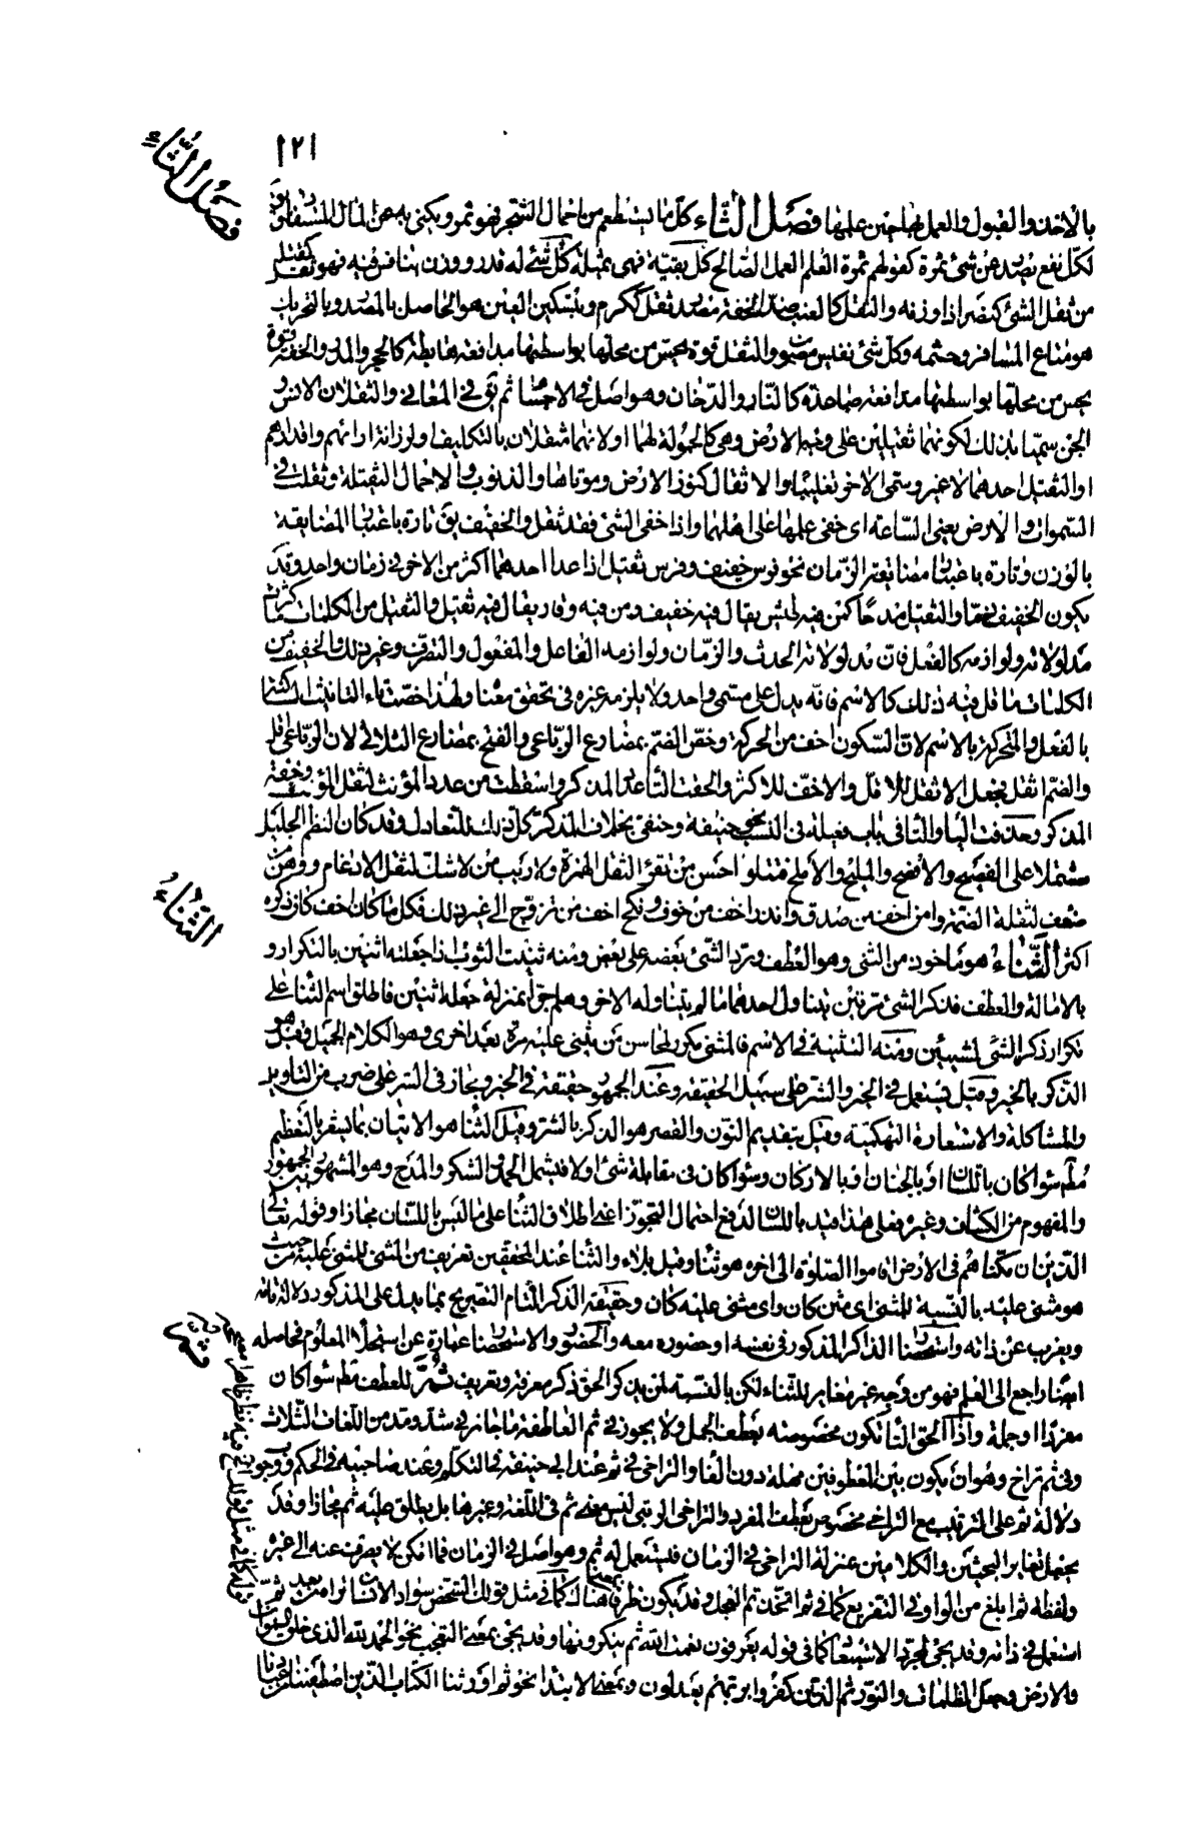 ١٢١
فصل الثاء
بالاخذ والقبول والعمل بها حين علمها فصل الثاء كل ما يستطعم من احمال الشجر فهو ثمر ويكنى به عن المال المستفاد
لكل نفع يصدر عن شئ ثمرة كقولهم ثمرة العلم العمل الصالح كل بقية فهى ثميلة كل شئ له قدر ووزن يتنافس فيه فهو ثقيل
من ثقل الشئ كنصر اذا وزنه والثقل كالعنب ضد الخفة مصدر ثقل ككرم وبتسكين العين هو الحاصل بالمصدر وبالتحريك
هو متاع المسافر وحشمه وكل شئ نفيس مصون والثقل قوة يحس من محلها بواسطتها مدافعة هابطة كالحجر والمدر والخفة قوة
يحس من محلها بواسطتها مدافعة صاعدة كالنار والدخان وهو اصل في الاجسام ثم يق في المعاني والثقلان الانس و
الجن سميا بذلك لكونهما ثقيلين على وجه الارض وهى كالحمولة لهما او لانهما مثقلان بالتكليف او لرزانة ارائهم واقدارهم
او الثقيل احدهما لا غير وسمى الاخر تغليبا والاثقال كنوز الارض وموتاها والذنوب والاحمال الثقيلة وثقلت في
السموات والارض يعنى الساعة اى خفى علمها على اهلها واذا خفى الشئ فقد ثقل والخفيف يق تارة باعتبار المضايقة
بالوزن وتارة باعتبار مضايفة الزمان نحو فرس خفيف وفرس ثقيل اذا عدا احدهما اكثر من الاخر في زمان واحد وقد
يكون الخفيف ذما والثقيل مدحا كمن فيه طيش يقال فيه خفيف ومن فيه وقار يقال فيه ثقيل والثقيل من الكلمات ما كثرت
مدلولاته ولوازمه كالفعل فان مدلولاته الحدث والزمان ولوازمه الفاعل والمفعول والتصرف وغير ذلك والخفيف من
الكلمات ما قل فيه ذلك كالاسم فانه يدل على مسمى واحد ولا يلزمه غيره في تحقق معناه ولهذا خصت تاء التانيث الساكنة
بالفعل والمتحركة بالاسم لان السكون اخف من الحركة وخص الضم بمضارع الرباعى والفتح بمضارع الثلاثي لان الرباعى اقل
والضم اثقل فجعل الاثقل للاقل والاخف للاكثر والحقت التاء عدد المذكر واسقطت من عدد المؤنث لثقل المؤنث وخفة
المذكر وحذفت الياء والتاء في باب فعيلة في النسب نحو حنيفة وحنفى بخلاف المذكر كل ذلك للتعادل وقد كان النظم الجليل
مشتملا على الفصيح والافصح والمليح والاملح فتتلو احسن من تقرء لثقل الهمزة ولا ريب من لا شك لثقل الادغام ووهن من
ضعف لثقلة الضمة وامن اخف من صدق وانذر اخف من خوف ونكح اخف من تزوج الى غير ذلك فكل ما كان اخف كان ذكره
اكثر الثناء هو ماخوذ من الثنى وهو العطف ورد الشئ بعضه على بعض ومنه ثنيت الثوب اذا جعلته اثنين بالتكرار و
بالامالة والعطف فذكر الشئ مرتين يتناول احدهما ما لم يتناوله الاخر وهلم جرا بمنزلة جعله اثنين فاطلق اسم الثناء على
تكرار ذكر الشئ لشيئين ومنه التثنية في الاسم فالمثنى مكرر لمحاسن من يثنى عليه مرة بعد اخرى وهو الكلام الجميل وقيل هو
الذكر بالخير وقيل يستعمل في الخير والشر على سبيل الحقيقة وعند الجمهور حقيقة في الخير ومجاز في الشر على ضرب من التاويل
والمشاكلة والاستعارة التهكمية وقيل بتقديم النون والقصر هو الذكر بالشر وقيل الثناء هو الاتيان بما يشعر بالتعظيم
مطلقا سواء كان باللسان او بالجنان او بالاركان وسواء كان في مقابلة شئ اولا فيشمل الحمد والشكر والمدح وهو المشهور بين الجمهور
والمفهوم من الكشاف وغيره فعلى هذا قيد باللسان لدفع احتمال التجوز اعنى اطلاق الثناء على ما ليس باللسان مجازا وقوله تعالى
الذين ان مكناهم في الارض اقاموا الصلوة الى اخره هو ثناء وقبل بلاء والثناء عند المحققين تعريف من المثنى للمثنى عليه من حيث
هو مثنى عليه بالنسبة للمثنى اى مثن كان واى مثنى عليه كان وحقيقة الذكر التام التصريح بما يدل على المذكور دلالة تامة
ويعرب عن ذاته واستحضار الذاكر المذكور في نفسه او حضوره معه والحضور والاستحضار عبارة عن استجلاء المعلوم فحاصله
ايضا راجع الى العلم فهو من وجه غير مغاير للثناء لكن بالنسبة لمن يذكر الحق ذكر معرفة وتعريف ثم للعطف مطلقا سواء كان
مفردا او جملة واذا الحق التاء تكون مخصوصة بعطف الجمل ولا يجوز في ثم العاطفة ما جاز في شد ومد من اللغات الثلاث
وفي ثم تراخ وهو ان يكون بين المعطوفين مهلة دون الفاء والتراخى في ثم عند ابي حنيفة في التكلم وعند صاحبيه في الحكم ووجوب
دلالة ثم على الترتيب مع التراخي مخصوص بعطف المفرد والتراخى الرتبى ليس معنى ثم في اللغة وغيرها بل يطلق عليه ثم مجازا وقد
يجعل تغاير البحثين والكلامين بمنزلة التراخى في الزمان فيستعمل له ثم وهو اصل في الزمان فما امكن لا يصرف عنه الى غيره
ولفظة ثم ابلغ من الواو في التقريع كما في ثم اتخذتم العجل وقد يكون ظرفا بمعنى هناك كما في مثل قولك الشخص سواد الانسان تراه من بعد ثم
استعمل في ذاته وقد يجئ لمجرد الاستبعاد كما في قوله يعرفون نعمت الله ثم ينكرونها وقد يجئ بمعنى التعجب نحو الحمد لله الذى خلق السموات
والارض وجعل الظلمات والنور ثم الذين كفروا بربهم يعدلون وبمعنى الابتداء نحو ثم اورثنا الكتاب الذين اصطفينا من عبادنا
الثناء
ثم